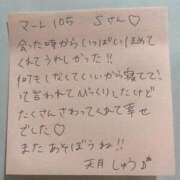 マート 105 Sさん♡
会った時からいっぱいほめて
くれてうれしかった!!
何もしなくていいから寝てて!
って言われてびっくりしたけど
たくさんさわってくれて幸せ
でした♡
またあそぼうね!!
天月 しゅう